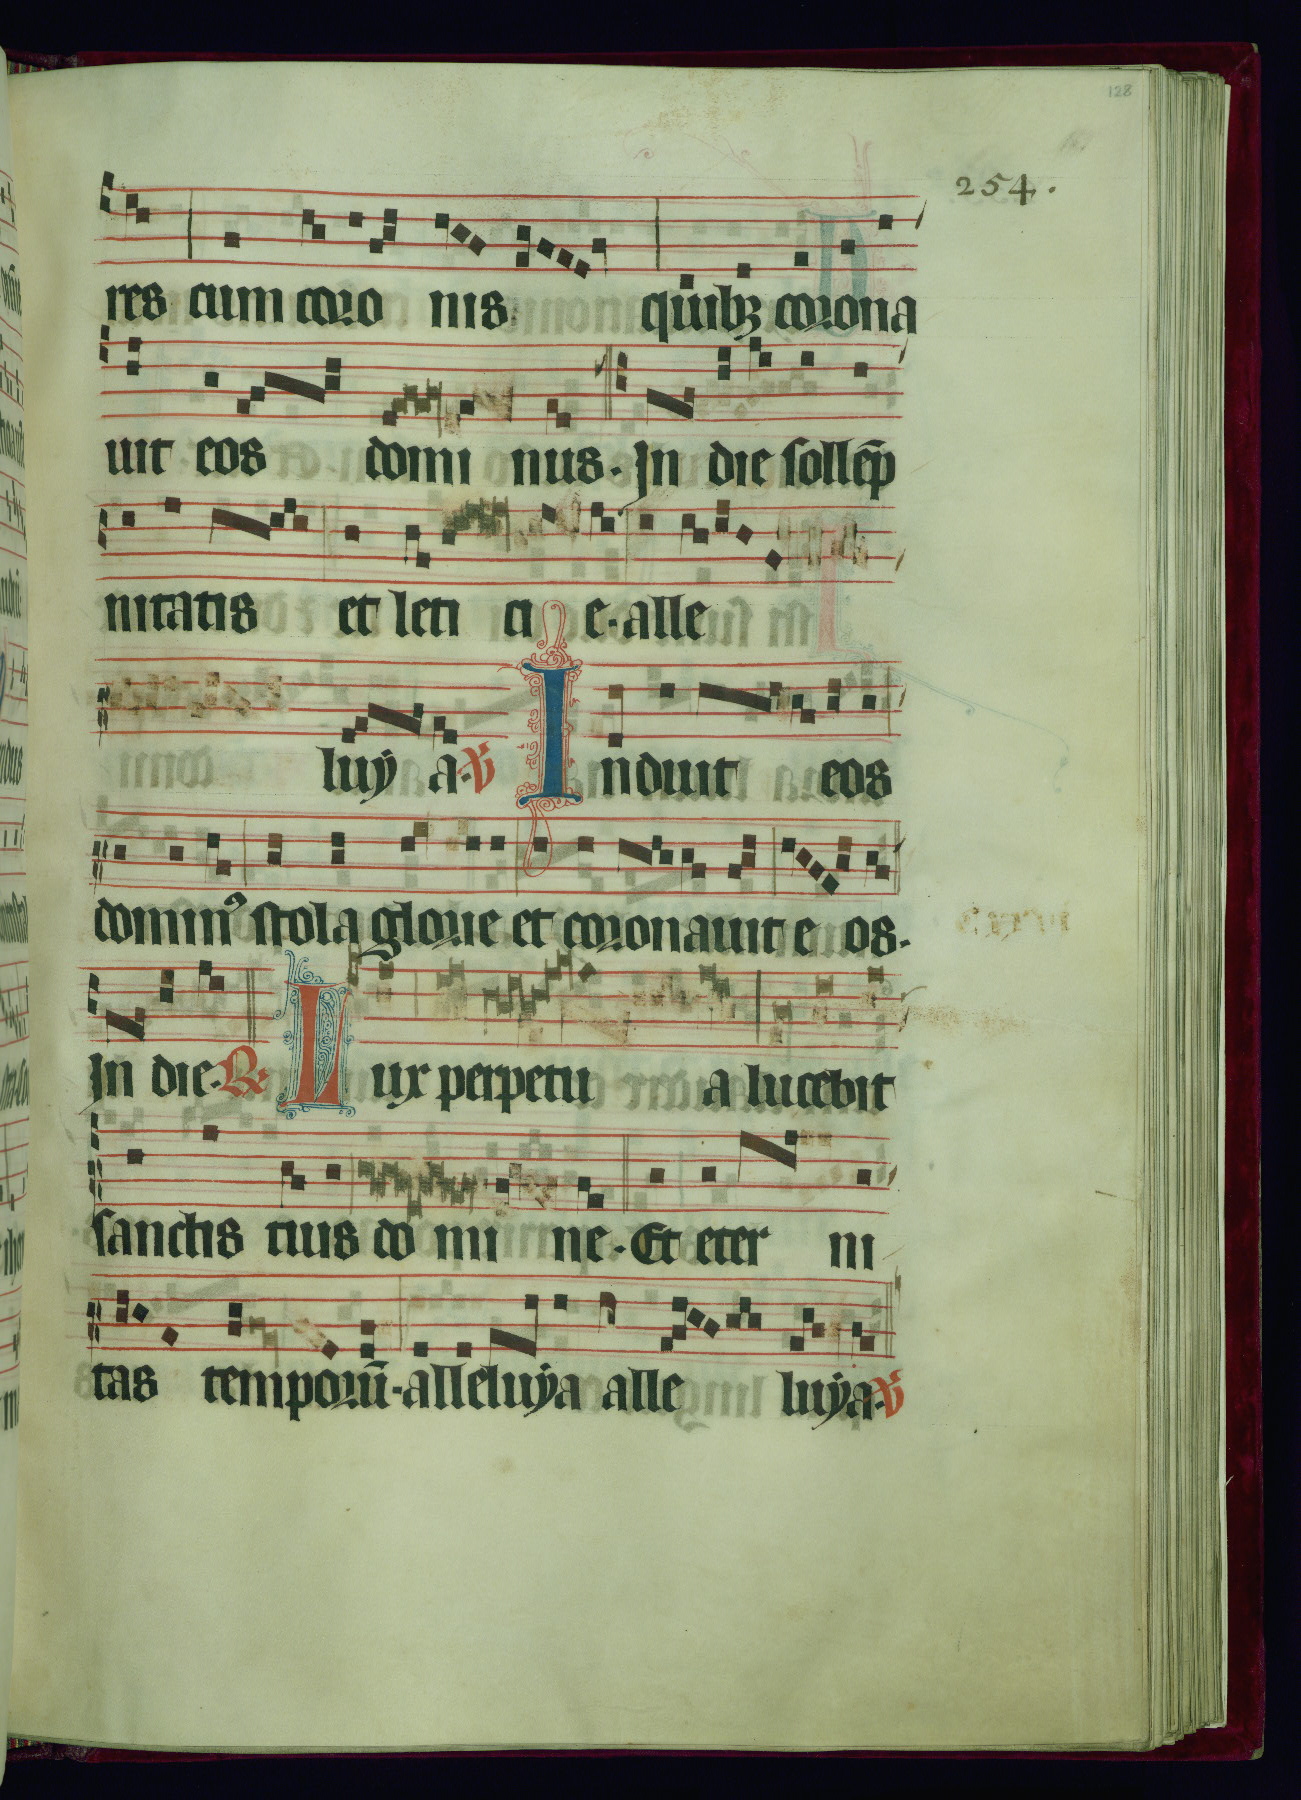 128
254.
res cum coro nis quibꝫ corona
uit eos domi nus. In die sollēp
nitatis et leti ci e. alle
luÿ a. ℣ Induit eos
dominꝰ stola glorie et coronauit e os.
In die. ℟ Lux perpetu a lucebit
sanctis tuis do mi ne. Et eter ni
tas temporū. alleluÿa alle luÿa. ℣